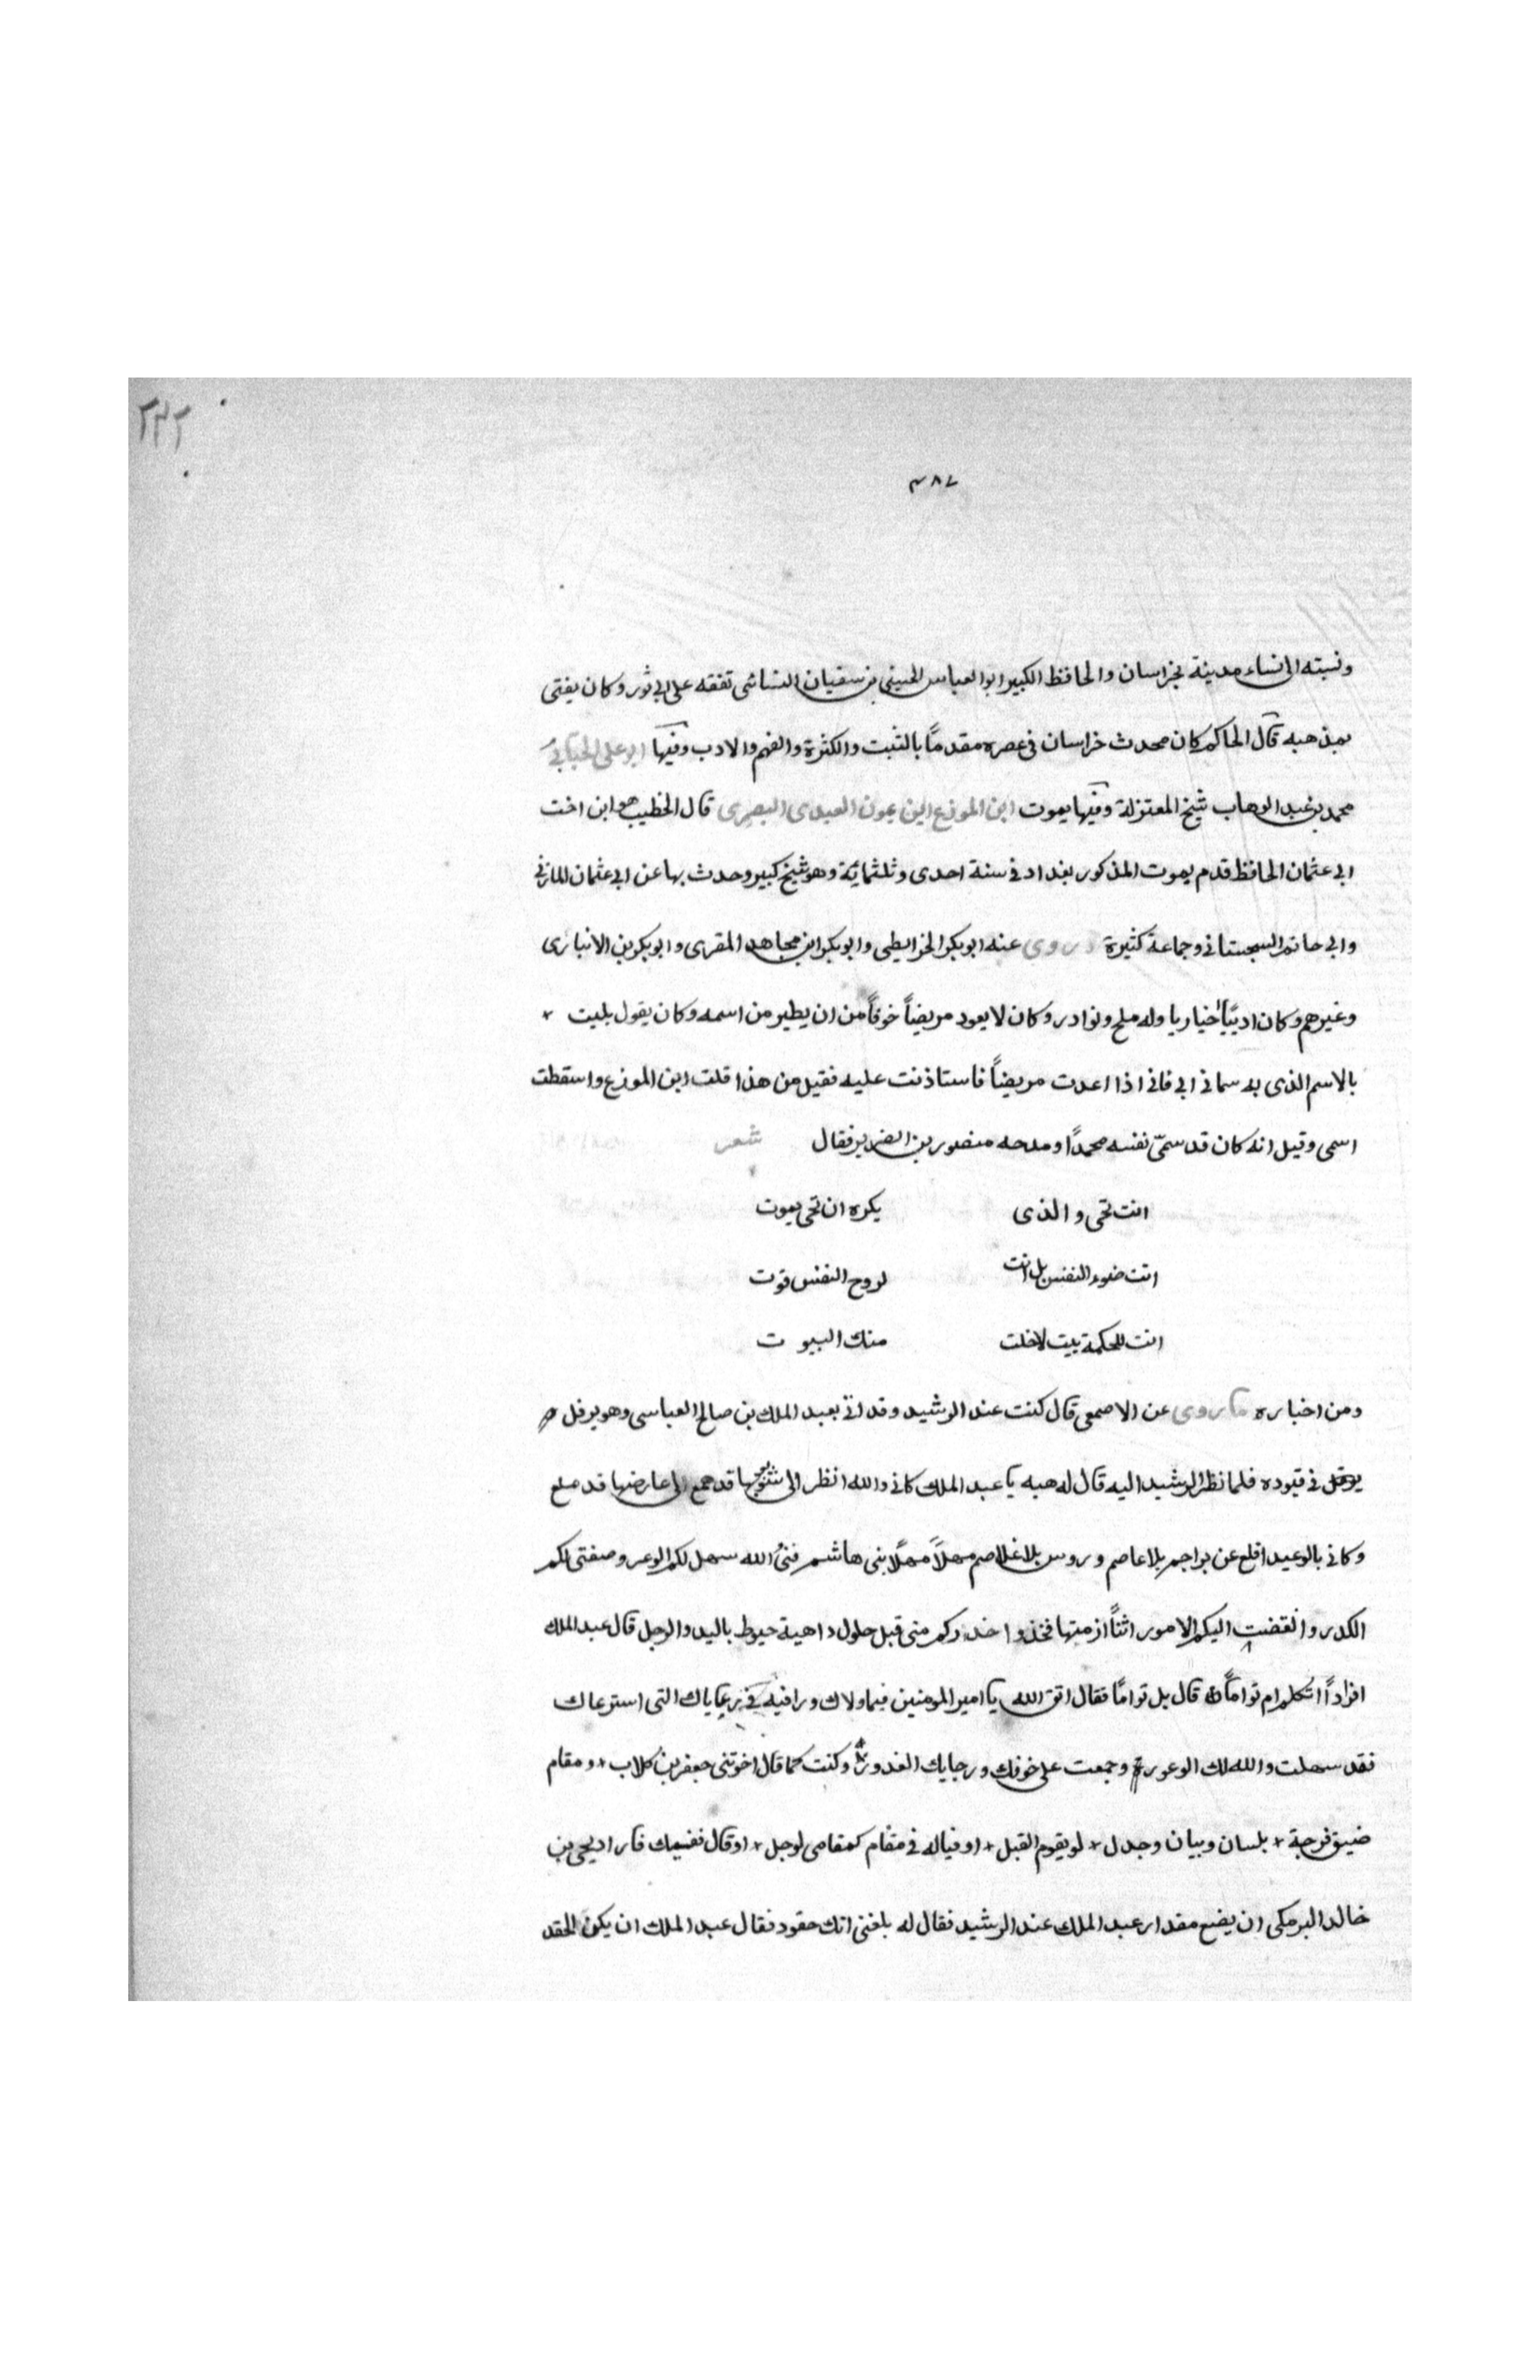 ٢٣٢
٣٨٧
ونسبته الى نساء مدينة بخراسان والحافظ الكبير ابو العباس الحسين بن سفيان النسائى تفقه على ابى ثور وكان يفتى
بمذهبه قال الحاكم كان محدث خراسان فى عصره مقدماً بالتثبت والكثرة والفهم والادب وفيها ابو على الجبائى
محمد بن عبد الوهاب شيخ المعتزلة وفيها يموت ابن الموزع ابن يمون العبدى البصرى قال الخطيب هو ابن اخت
ابى عثمان الحافظ قدم يموت المذكور بغداد فى سنة احدى وثلثمائة وهو شيخ كبير وحدث بها عن ابى عثمان المازنى
وابى حاتم السجستانى وجماعة كثيرة روى عنه ابو بكر الخرايطى وابو بكر ابن مجاهد المقرى وابو بكر بن الانبارى
وغيرهم وكان اديبًا اخياريا وله ملح ونوادر وكان لا يعود مريضاً خوفاً من ان يطير من اسمه وكان يقول بليت
بالاسم الذى به سمانى ابى فانى اذا اعدت مريضاً فاستاذنت عليه فقيل من هذا قلت ابن الموزع واسقطت
اسمى وقيل انه كان قد سمّى نفسه محمدًا ومدحه منصور بن الضرير فقال شعر
انت تحى والذى يكره ان تحى يموت
انت ضوء النفس بل انت لروح النفس قوت
انت للحكمة بيت لا خلت منك البيوت
ومن اخباره ما روى عن الاصمعى قال كنت عند الرشيد وقد اتى بعبد الملك بن صالح العباسى وهو يرفل
فى قيوده فلما نظر الرشيد اليه قال له هيه يا عبد الملك كانى والله انظر الى شئوبها قد همع الى عارضها قد ملع
وكانى بالوعيد اقلع عن براجم بلا عاصم وروس بلا غلاصم مهلاً مهلًا بنى هاشم فنى الله سهل لكم الوعر وصفتى لكم
الكدر والقضت اليكم الامور اثنًا ازمتها فخذوا حذركم منى قبل حلول داهية خيوط باليد والرجل قال عبد الملك
افراداً اتكلم ام تواماً قال بل تواماً فقال اتق الله يا امير المومنين فيما ولاك ورافيه فى رعاياك التى استرعاك
فقد سهلت والله لك الوعورة وجمعت على خوفك ورجايك الغدور وكنت كما قال اخو تنى جعفر بن كلاب ومقام
ضيق فرجة بلسان وبيان وجدل لو يقوم القيل او فياله فى مقام كمقامى لوجل او قال ففسيك فاراد يحيى بن
خالد البرمكى ان يضع مقدار عبد الملك عند الرشيد فقال له بلغنى انك حقود فقال عبد الملك ان يكن الحقد